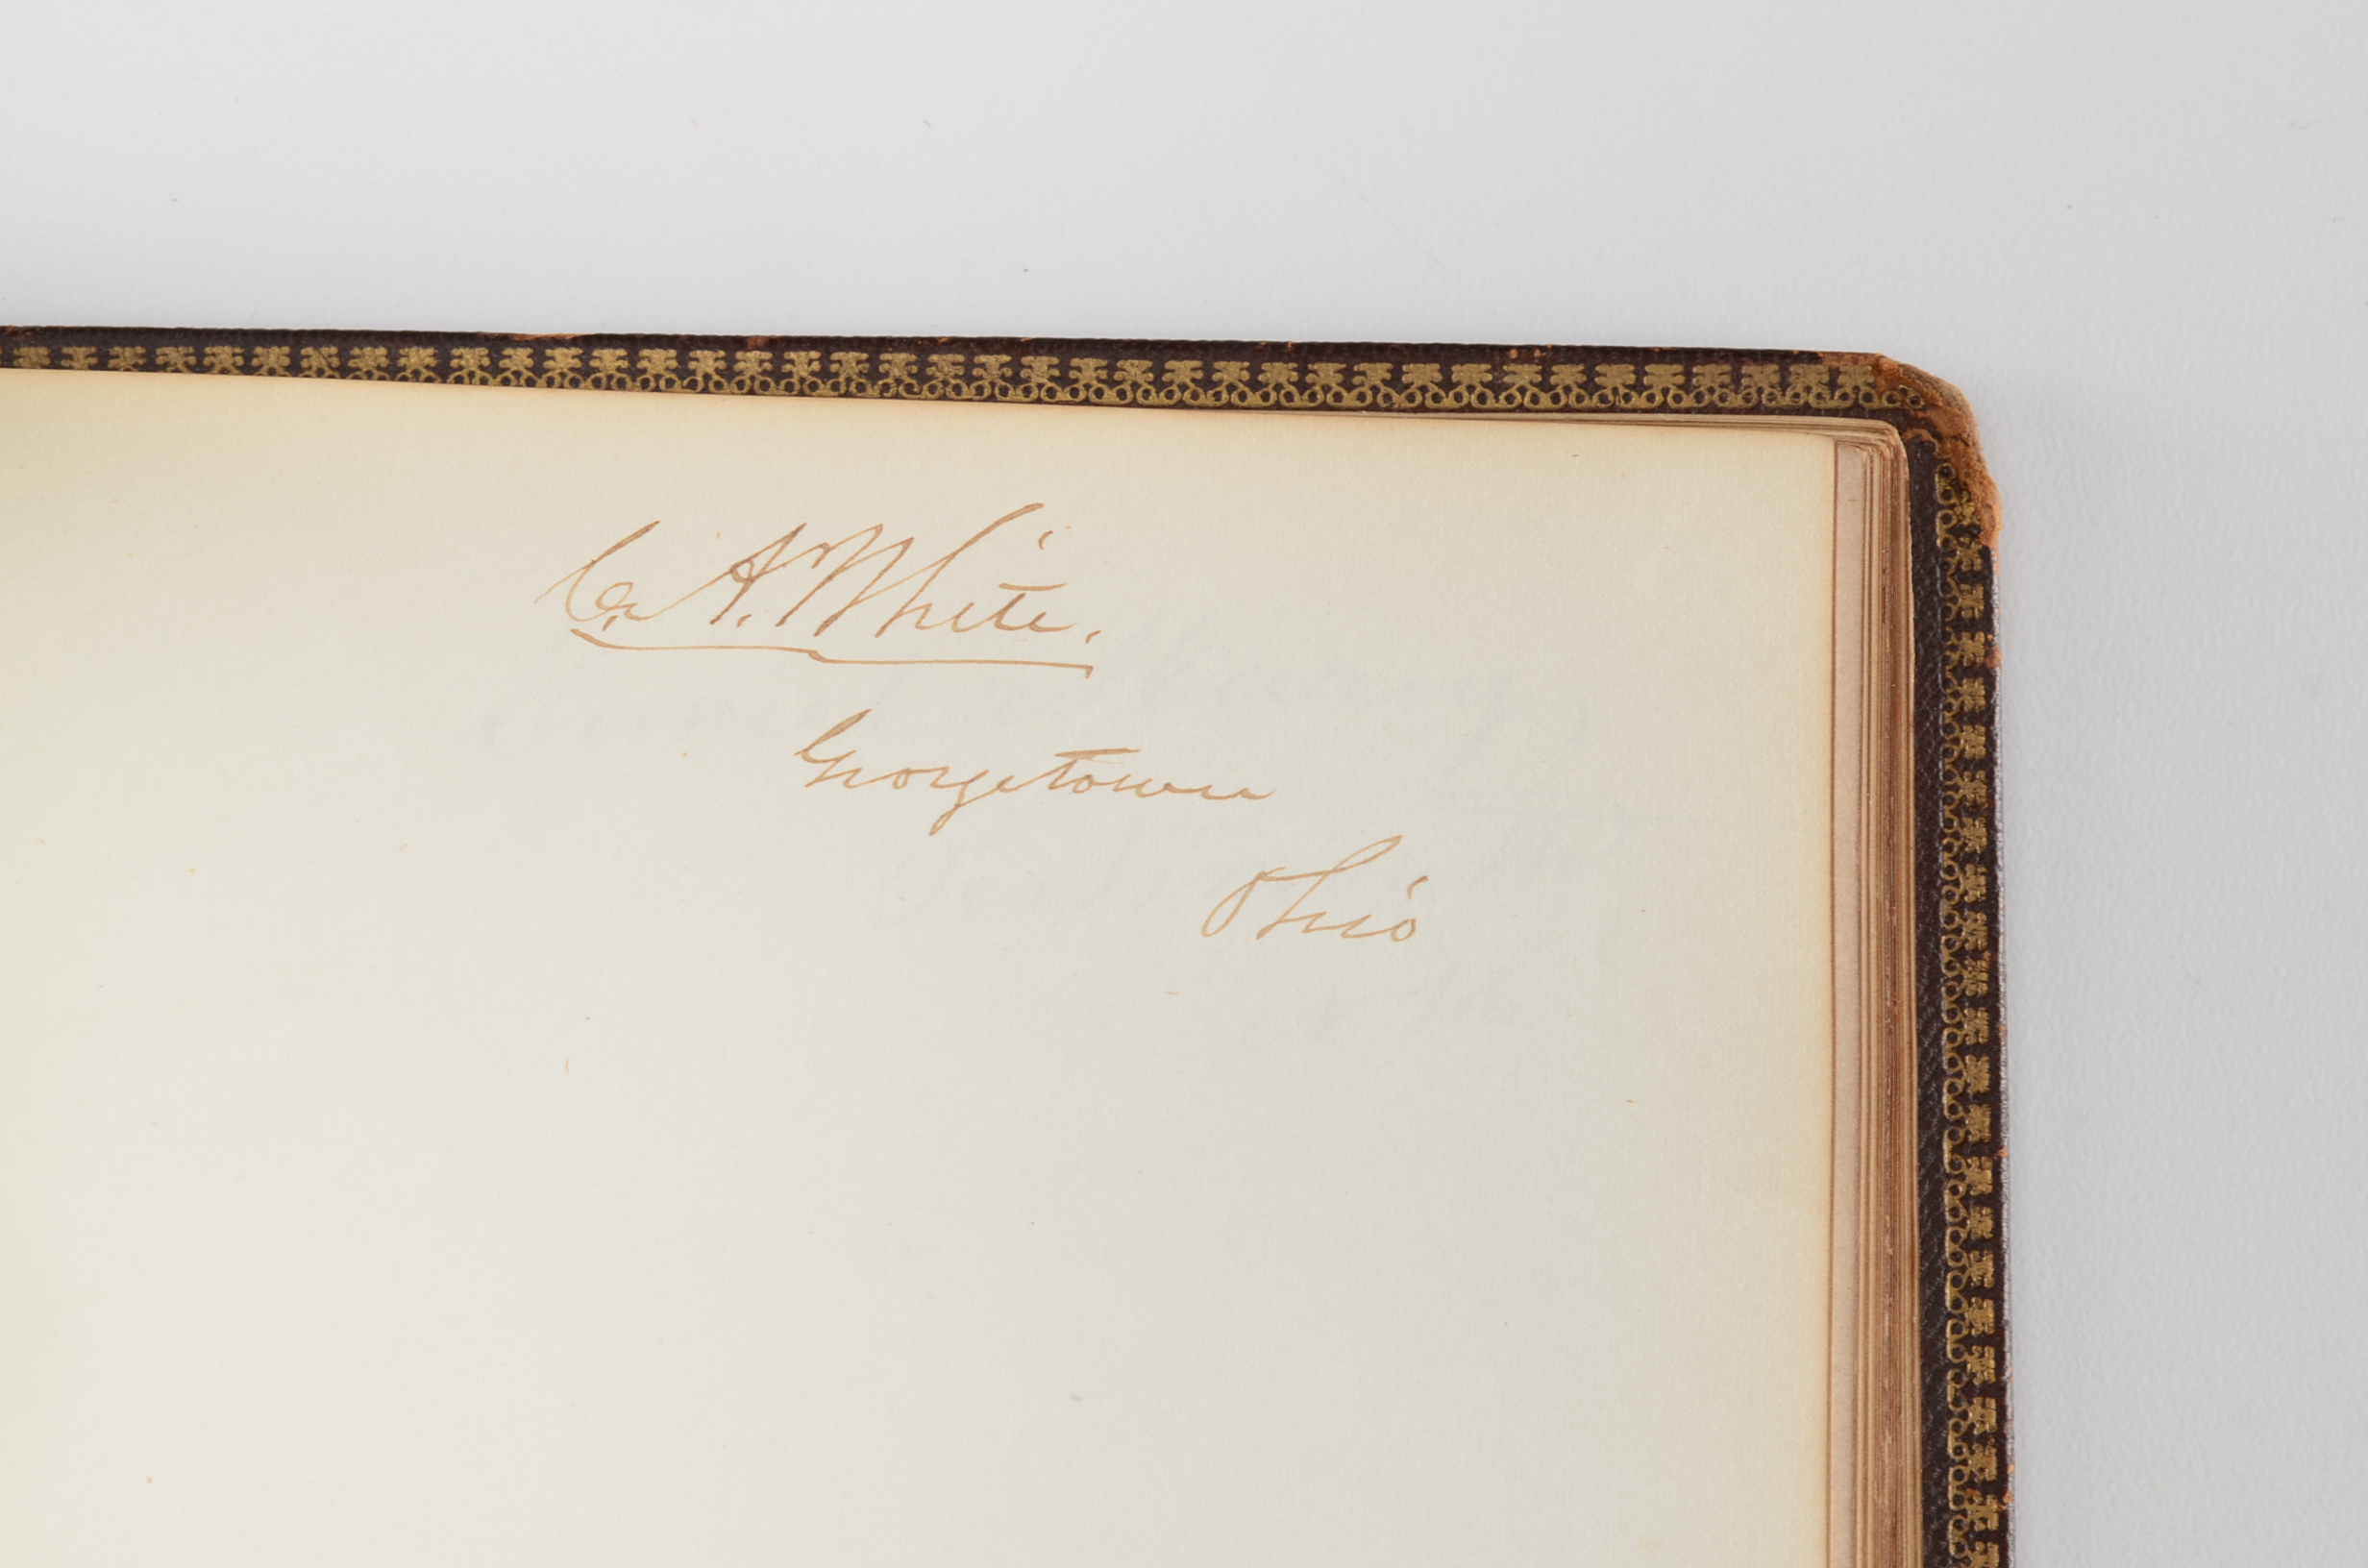 C. A. White.
Georgetown
Ohio